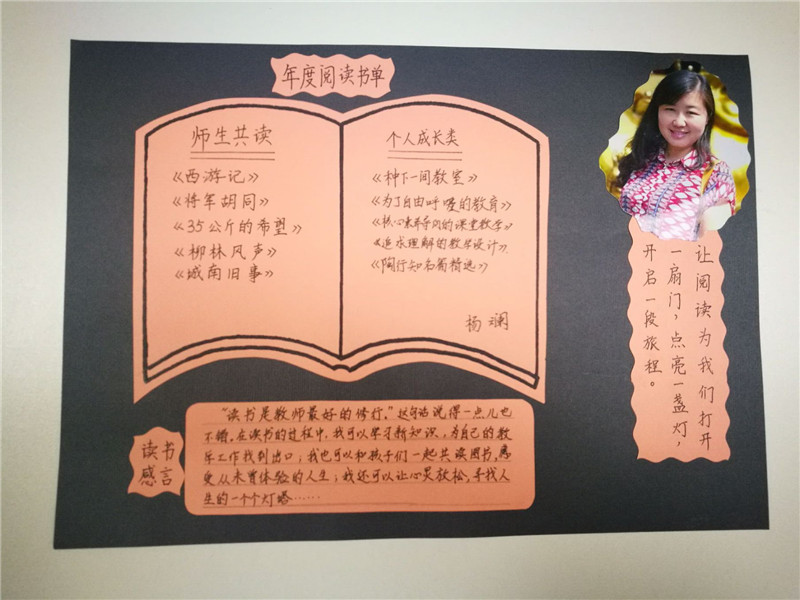 年度阅读书单
师生共读
《西游记》
《将军胡同》
《35公斤的希望》
《柳林风声》
《城南旧事》
个人成长类
《种下一间教室》
《为了自由呼吸的教育》
《核心素养导向的课堂教学》
《追求理解的教学设计》
《陶行知名篇精选》
杨澜
让阅读为我们打开
一扇门，点亮一盏灯，
开启一段旅程。
读书
感言
“读书是教师最好的修行。”这句话说得一点儿也
不错。在读书的过程中，我可以学习新知识，为自己的教
年工作找到出口；我也可以和孩子们一起共读图书，感
受从未曾体验的人生；我还可以让心灵放松，寻找人
生的一个个灯塔……